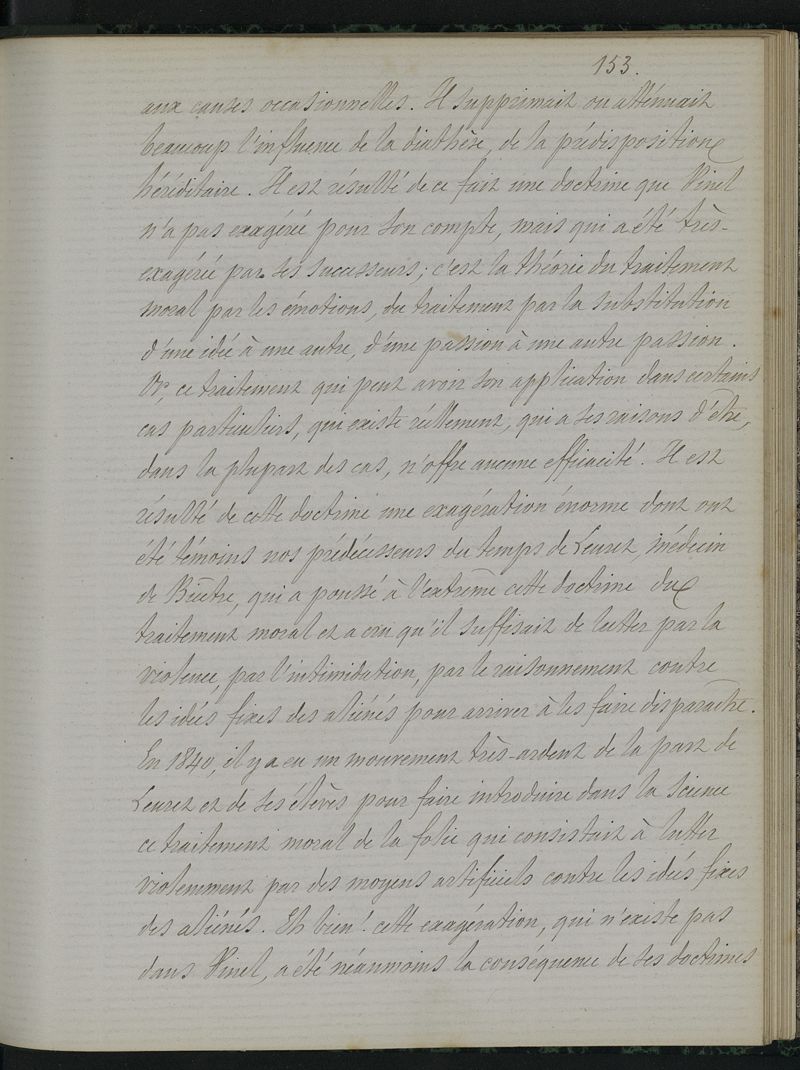 153.
aux causes occasionnelles. Il supprimait ou atténuait
beaucoup l'influence de la diathèse, de la prédisposition
héréditaire. Il est résulté de ce fait une doctrine que Pinel
n'a pas exagérée pour son compte, mais qui a été très-
exagérée par ses successeurs; c'est la théorie du traitement
moral par les émotions, du traitement par la substitution
d'une idée à une autre, d'une passion à une autre passion.
Or, ce traitement qui peut avoir son application dans certains
cas particuliers, qui existe réellement, qui a ses raisons d'être,
dans la plupart des cas, n'offre aucune efficacité. Il est
résulté de cette doctrine une exagération énorme dont ont
été témoins nos prédécesseurs du temps de Leuret, médecin
de Bicêtre, qui a poussé à l'extrême cette doctrine du
traitement moral et a cru qu'il suffisait de lutter par la
violence, par l'intimidation, par le raisonnement contre
les idées fixes des aliénés pour arriver à les faire disparaître.
En 1840, il y a eu un mouvement très-ardent de la part de
Leuret et de ses élèves pour faire introduire dans la science
ce traitement moral de la folie qui consistait à lutter
violemment par des moyens artificiels contre les idées fixes
des aliénés. Eh bien! cette exagération, qui n'existe pas
dans Pinel, a été néanmoins la conséquence de ses doctrines